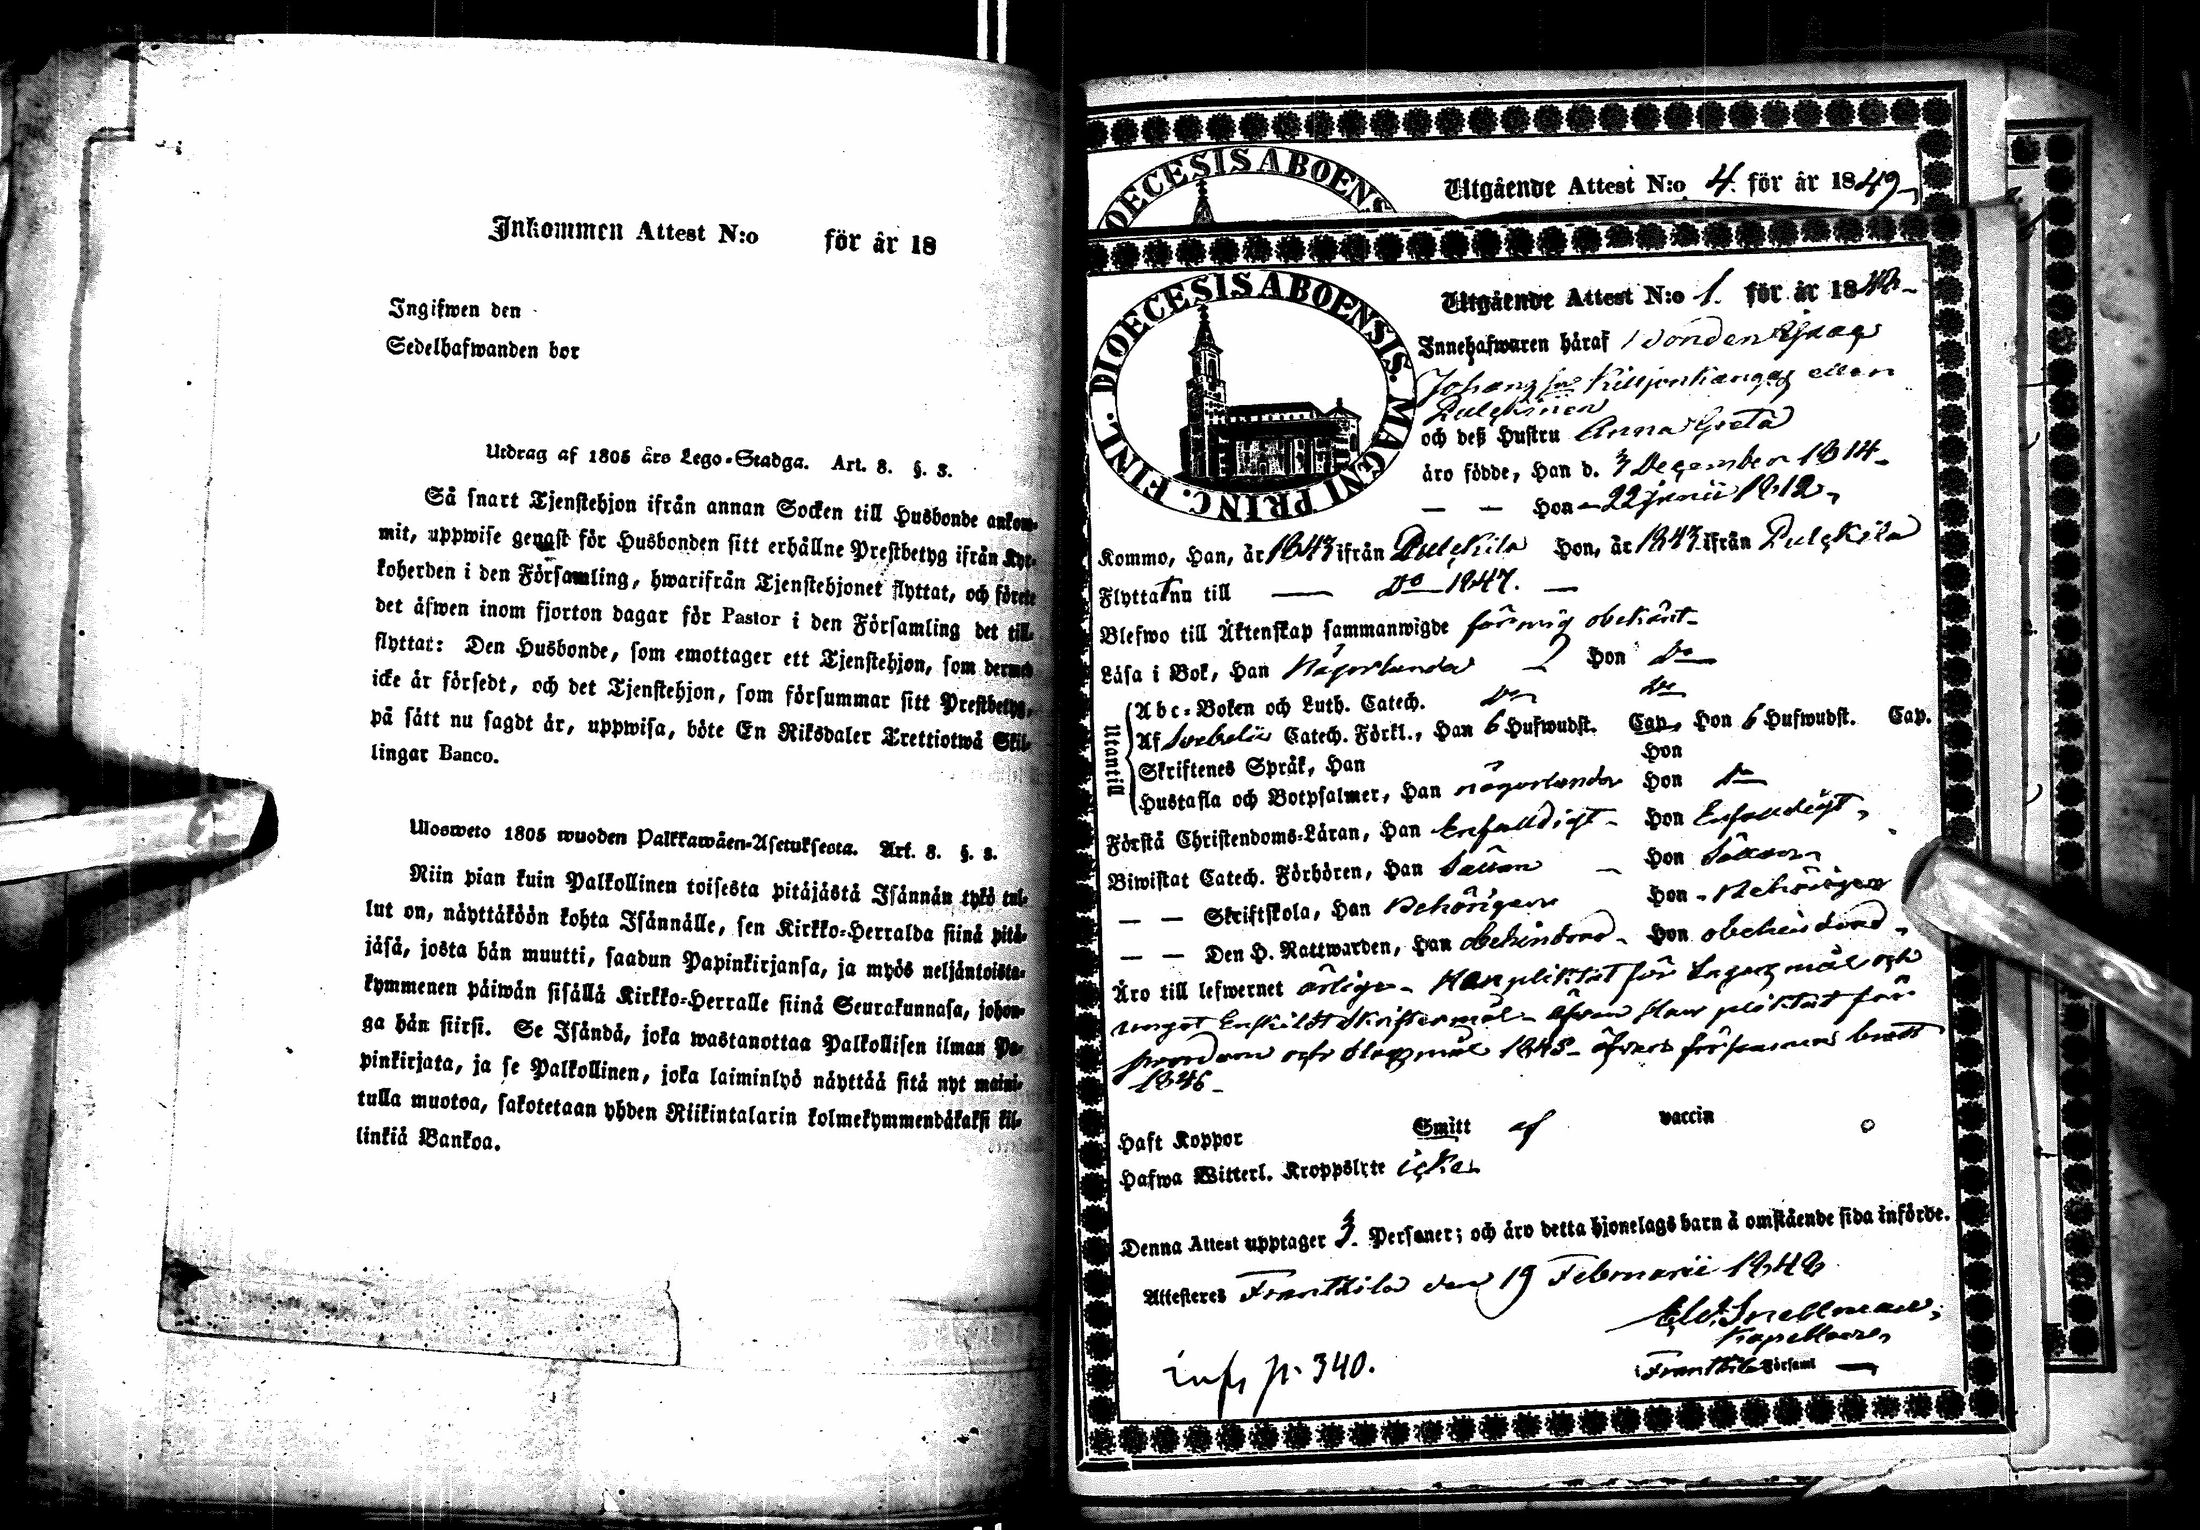 Inkommen Attest N:o för år 18
Ingifwen den
Sedelhafwanden bor
Utdrag af 1805 års Lego-Stadga. Art. 8. §. 3.
Så snart Tjenstehjon ifrån annan Socken till Husbonde ankom-
mit, uppwise genast för Husbonden sitt erhållne Prestbetyg ifrån Kyr-
koherden i den Församling, hwarifrån Tjenstehjonet flyttat, och förete
det äfwen inom fjorton dagar för Pastor i den Församling det till-
flyttat: Den Husbonde, som emottager ett Tjenstehjon, som dermed
icke är försedt, och det Tjenstehjon, som försummar sitt Prestbetyg,
på sått nu sagdt år, uppwisa, böte En Riksdaler Trettiotwå Skil-
lingar Banco.
Ulosweto 1805 wuoden Palkkawäen-Asetuksesta. Art. 8. §. 3.
Niin pian kuin Palkollinen toisesta pitäjästä Isännän tykö tul-
lut on, näyttäköön kohta Isännälle, sen Kirkko-Herralda siinä pitä-
jäsä, josta hän muutti, saadun Papinkirjansa, ja myös neljäntoista-
kymmenen päiwän sisällä Kirkko-Herralle siinä Seurakunnasa, johon-
ga hän siirsi. Se Isändä, joka wastanottaa Palkollisen ilman Pa-
pinkirjata, ja se Palkollinen, joka laiminlyö näyttää sitä nyt maini-
tulla muotoa, sakotetaan yhden Riikintalarin kolmekymmendäkaksi kil-
linkiä Bankoa.
DIOECESIS ABOENS
Utgående Attest N:o 4. för år 1849
DIOECESIS ABOENSIS. MAGNI PRINC. FINL.
Utgående Attest N:o 1. för år 1848
Innehafwaren häraf Bonden Isaac
Johansson Kiljonkangas eller
Pulckinen
och deß Hustru Anna Greta
äro födde, Han d. 3 December 1814
— — Hon 22 junii 1812
Kommo, Han, år 1843 ifrån Pulckila Hon, år 1843 ifrån Pulckila
Flytta nu till — Do 1847. —
Blefwo till Äktenskap sammanwigde för mig obekant
Läsa i Bok, Han Någorlunda Hon Do
Utantill
Abc-Boken och Luth. Catech. Do Do
Af Svebelii Catech. Förkl., Han 6 Hufwudst. Cap. Hon 6 Hufwudst. Cap.
Skriftenes Språk, Han Hon
Hustafla och Botpsalmer, Han någorlunda Hon Do
Förstå Christendoms-Läran, Han Enfaldigt Hon Enfaldigt
Biwistat Catech. Förhören, Han Sällan Hon Sällan
— — Skriftskola, Han Behörigen Hon Behörigen
— — Den H. Nattwarden, Han obehindrad Hon obehindrad
Äro till lefwernet ärlige. Han pliktat för Lägersmål och
undgått Enskildt Skriftermål äfven Han pliktat för
svordom och slagsmål 1845 äfven för samma brott
1846
Haft Koppor Smitt af vaccin
Hafwa Witterl. Kroppslyte icke
Denna Attest upptager 3. Personer; och äro detta hjonelags barn å omstående sida införde.
Attesteres Frantsila den 19 Februarii 1848
Snellman,
Kapellan
i Frantsila Församl
inf. p. 340.